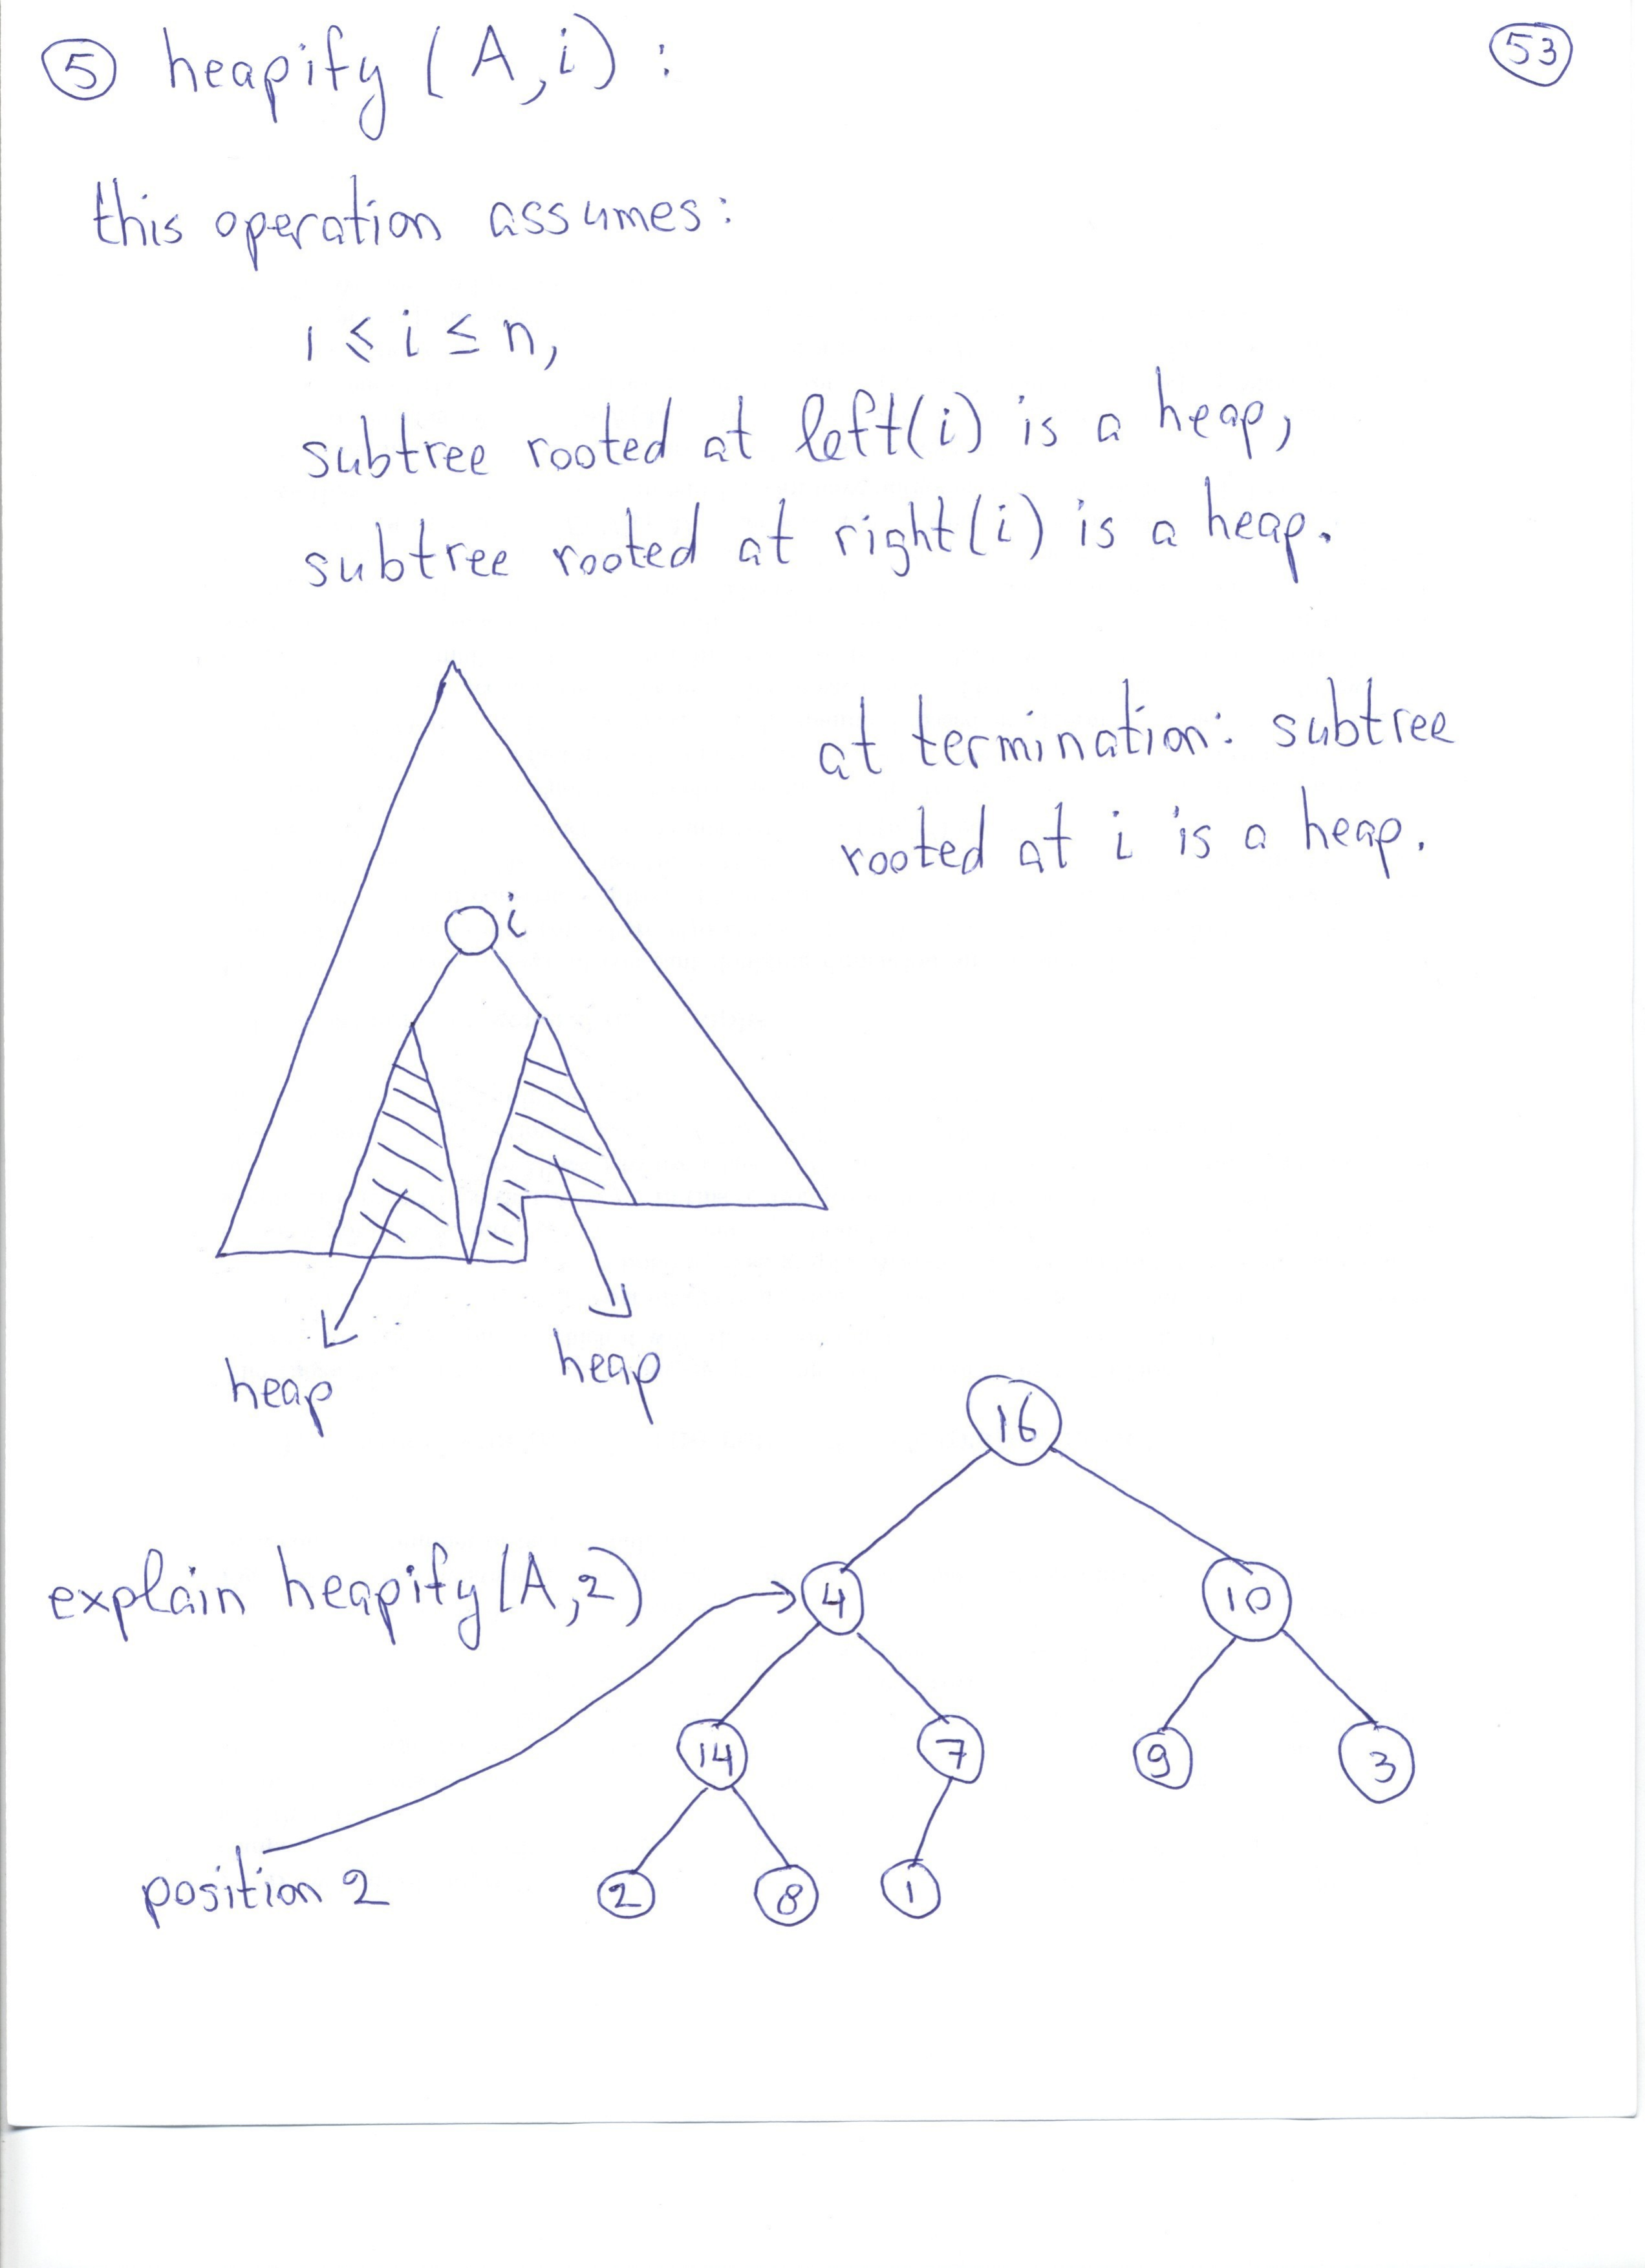 ⑤ heapify (A,i) :
53
this operation assumes:
1 ≤ i ≤ n,
subtree rooted at left(i) is a heap,
subtree rooted at right(i) is a heap.
at termination: subtree
rooted at i is a heap.
i
heap
heap
16
explain heapify(A,2)
4
10
14
7
9
3
position 2
2
8
1